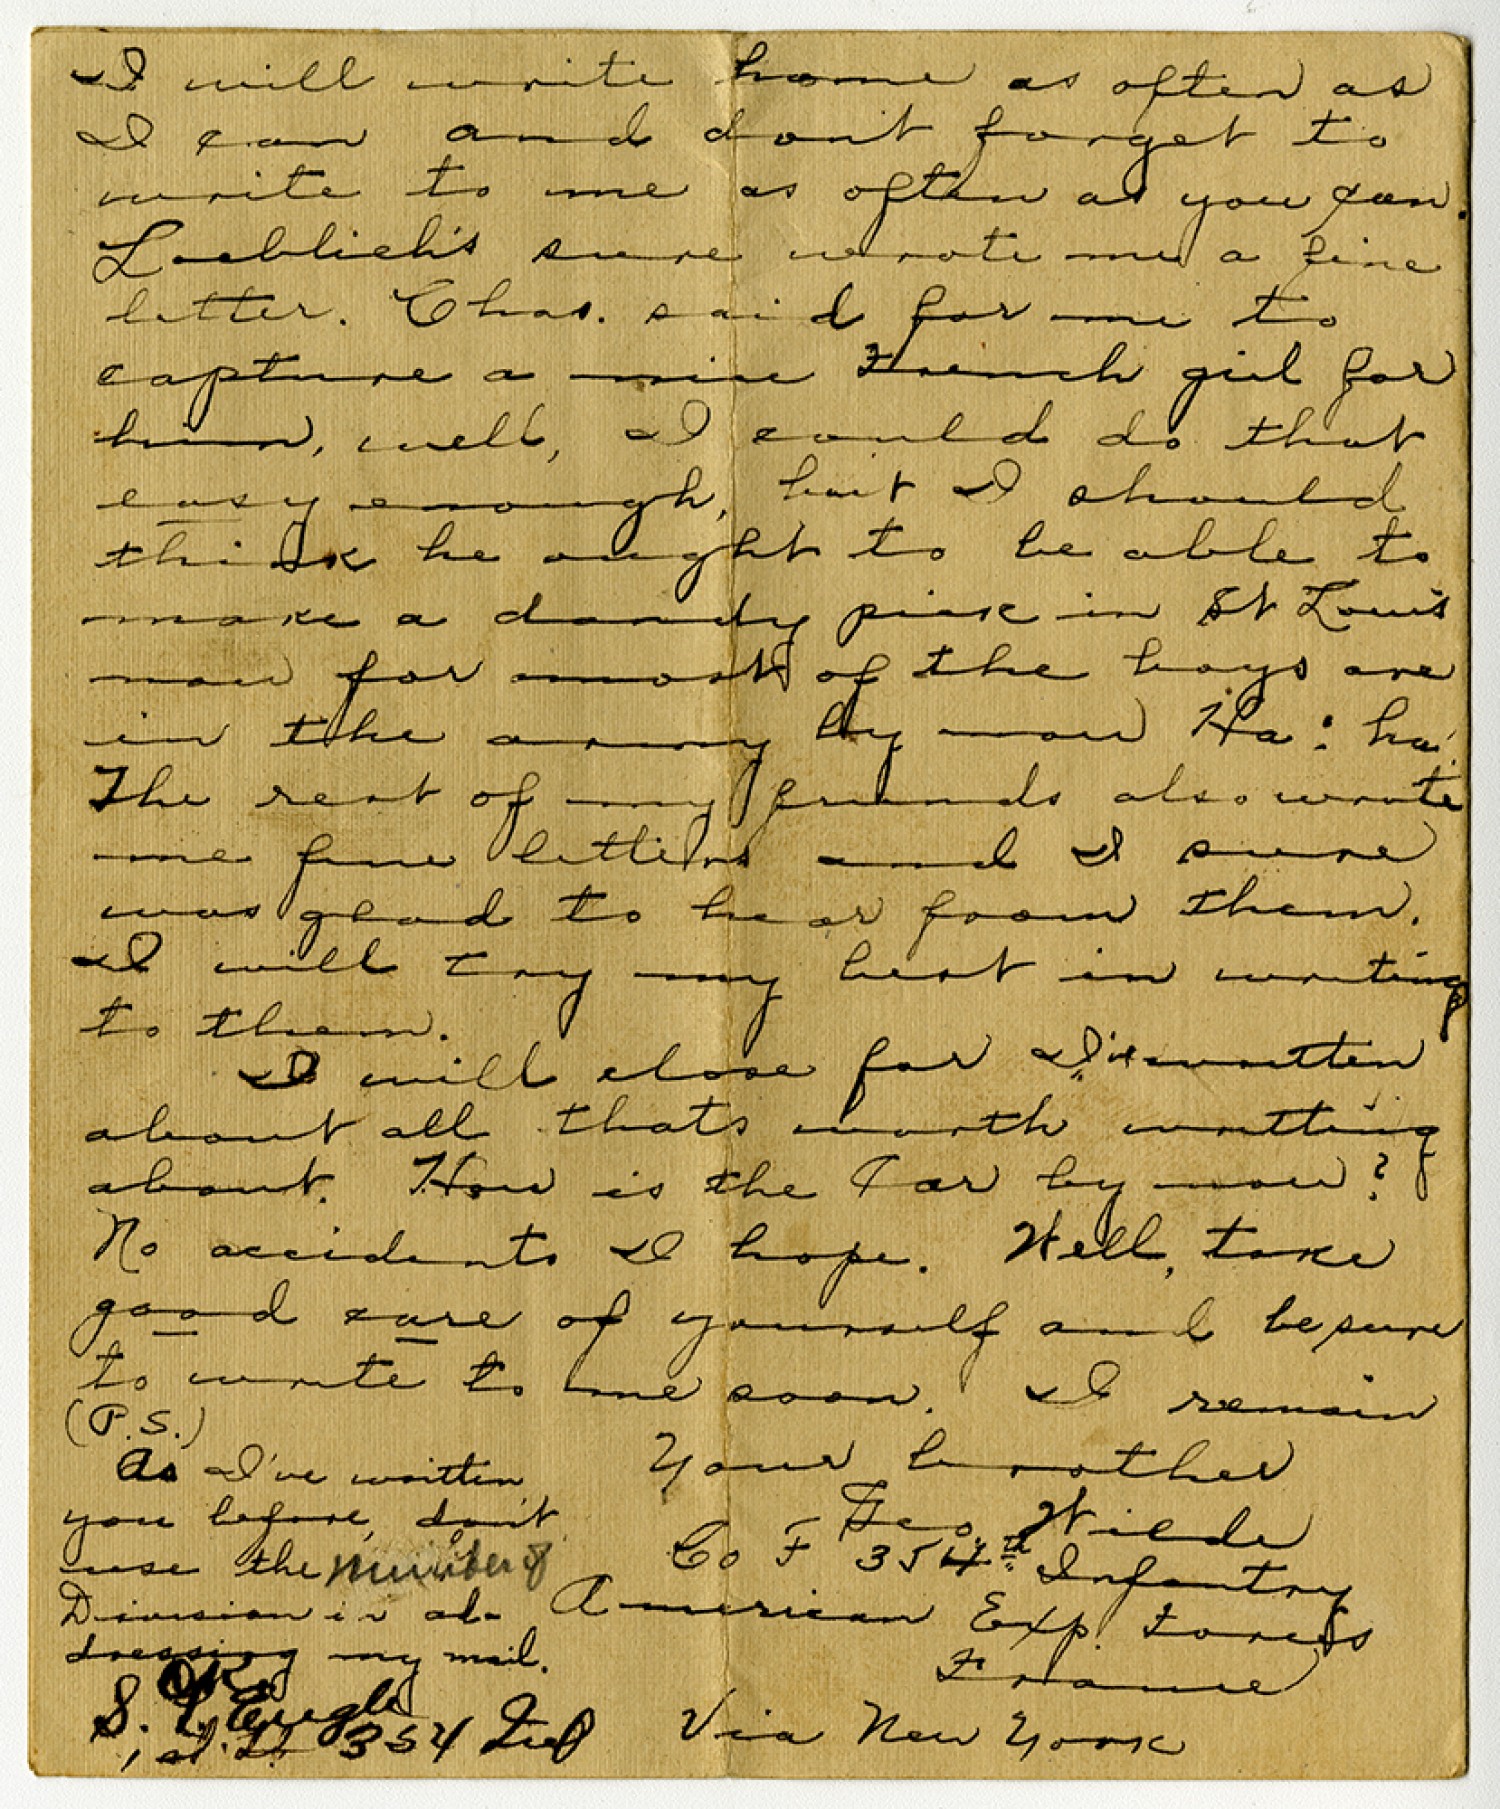 I will write home as often as
I can and dont forget to
write to me as often as you can.
Loeblich's sure wrote me a fine
letter. Chas. said for me to
capture a nice French girl for
him, well, I could do that
easy enough, but I should
think he ought to be able to
make a dandy pick in St Louis
now for most of the boys are
in the army by now Ha! ha!
The rest of my friends also wrote
me fine letters and I sure
was glad to hear from them.
I will try my best in writing
to them.
I will close for I've written
about all thats worth writting
about. How is the Car by now?
No accidents I hope. Well, take
good care of yourself and be sure
to write to me soon. I remain
Your brother
Geo. Wilde
Co F 354th Infantry
American Exp. Forces
France
Via New York
(P.S.)
As I've written
you before, don't
use the number of
Division in ad-
dressing my mail.
OK
S.
1st Lt. 354 Inf